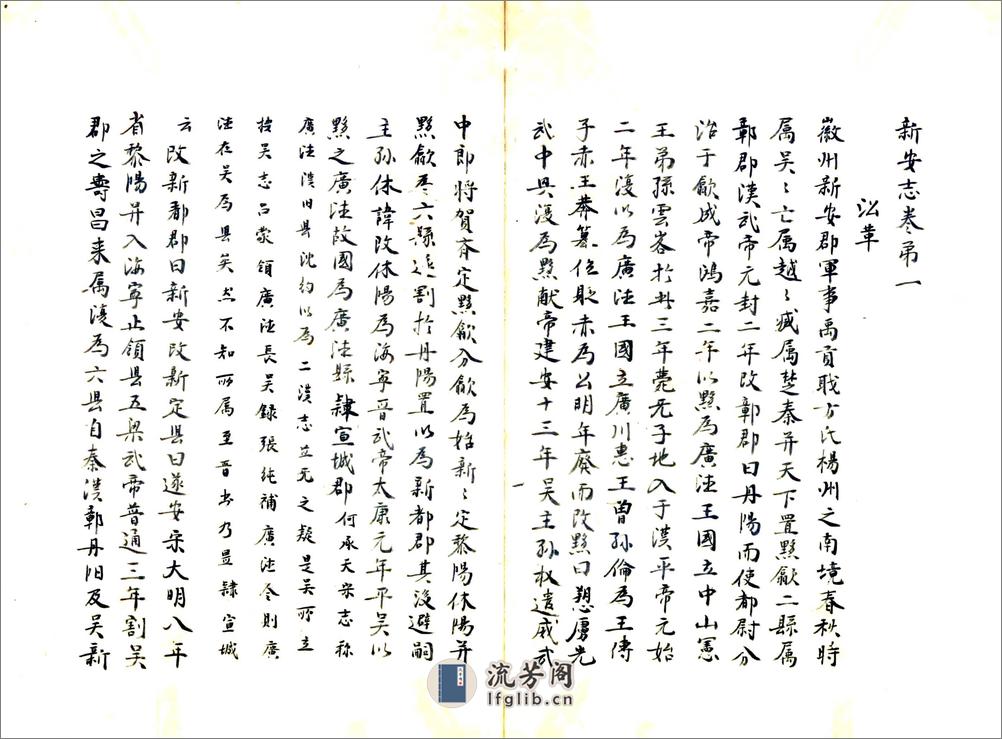 新安志卷第一
㳂革
徽州新安郡軍事禹貢職方氏楊州之南境春秋時
属吴〻亡属越〻滅属楚秦并天下置黟歙二縣属
鄣郡漢武帝元封二年改鄣郡曰丹陽而使都尉分
治于歙成帝鴻嘉二年以黟為廣法王國立中山憲
王弟孫雲客於此三年薨无子地入于漢平帝元始
二年復以為廣法王國立廣川惠王曾孫倫為王傳
子赤王莽篡位貶赤為公明年廢而改黟曰愬虜光
武中興復為黟献帝建安十三年吴主孫权遣威武
中郎将賀斉定黟歙分歙為始新〻定黎陽休陽并
黟歙凢六縣遂割於丹陽置以為新都郡其後避嗣
主孫休諱改休陽為海寧晋武帝太康元年平吴以
黟之廣法故國為廣法縣隸宣城郡何承天宋志称
廣法漢旧县沈約以為二漢志並无之疑是吴所立
按吴志吕蒙領廣法長吴録張純補廣法令則廣
法在吴為县矣然不知所属至晋书乃显隸宣城
云改新都郡曰新安改新定县曰遂安宋大明八年
省黎陽并入海寧止領县五梁武帝普通三年割吴
郡之壽昌来属復為六县自秦漢鄣丹阳及吴新
流芳阁
lfglib.cn